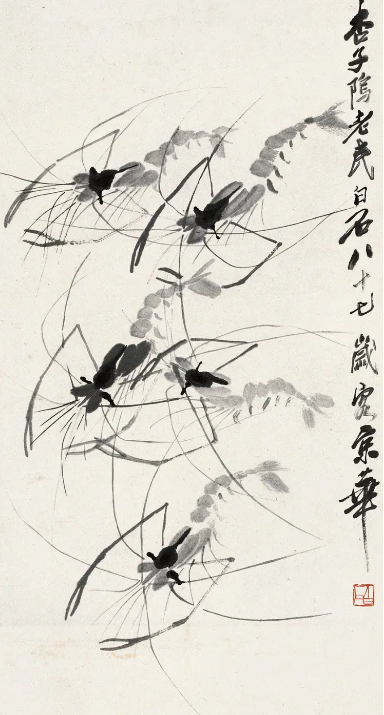 杏子隖老民白石八十七歲客京華